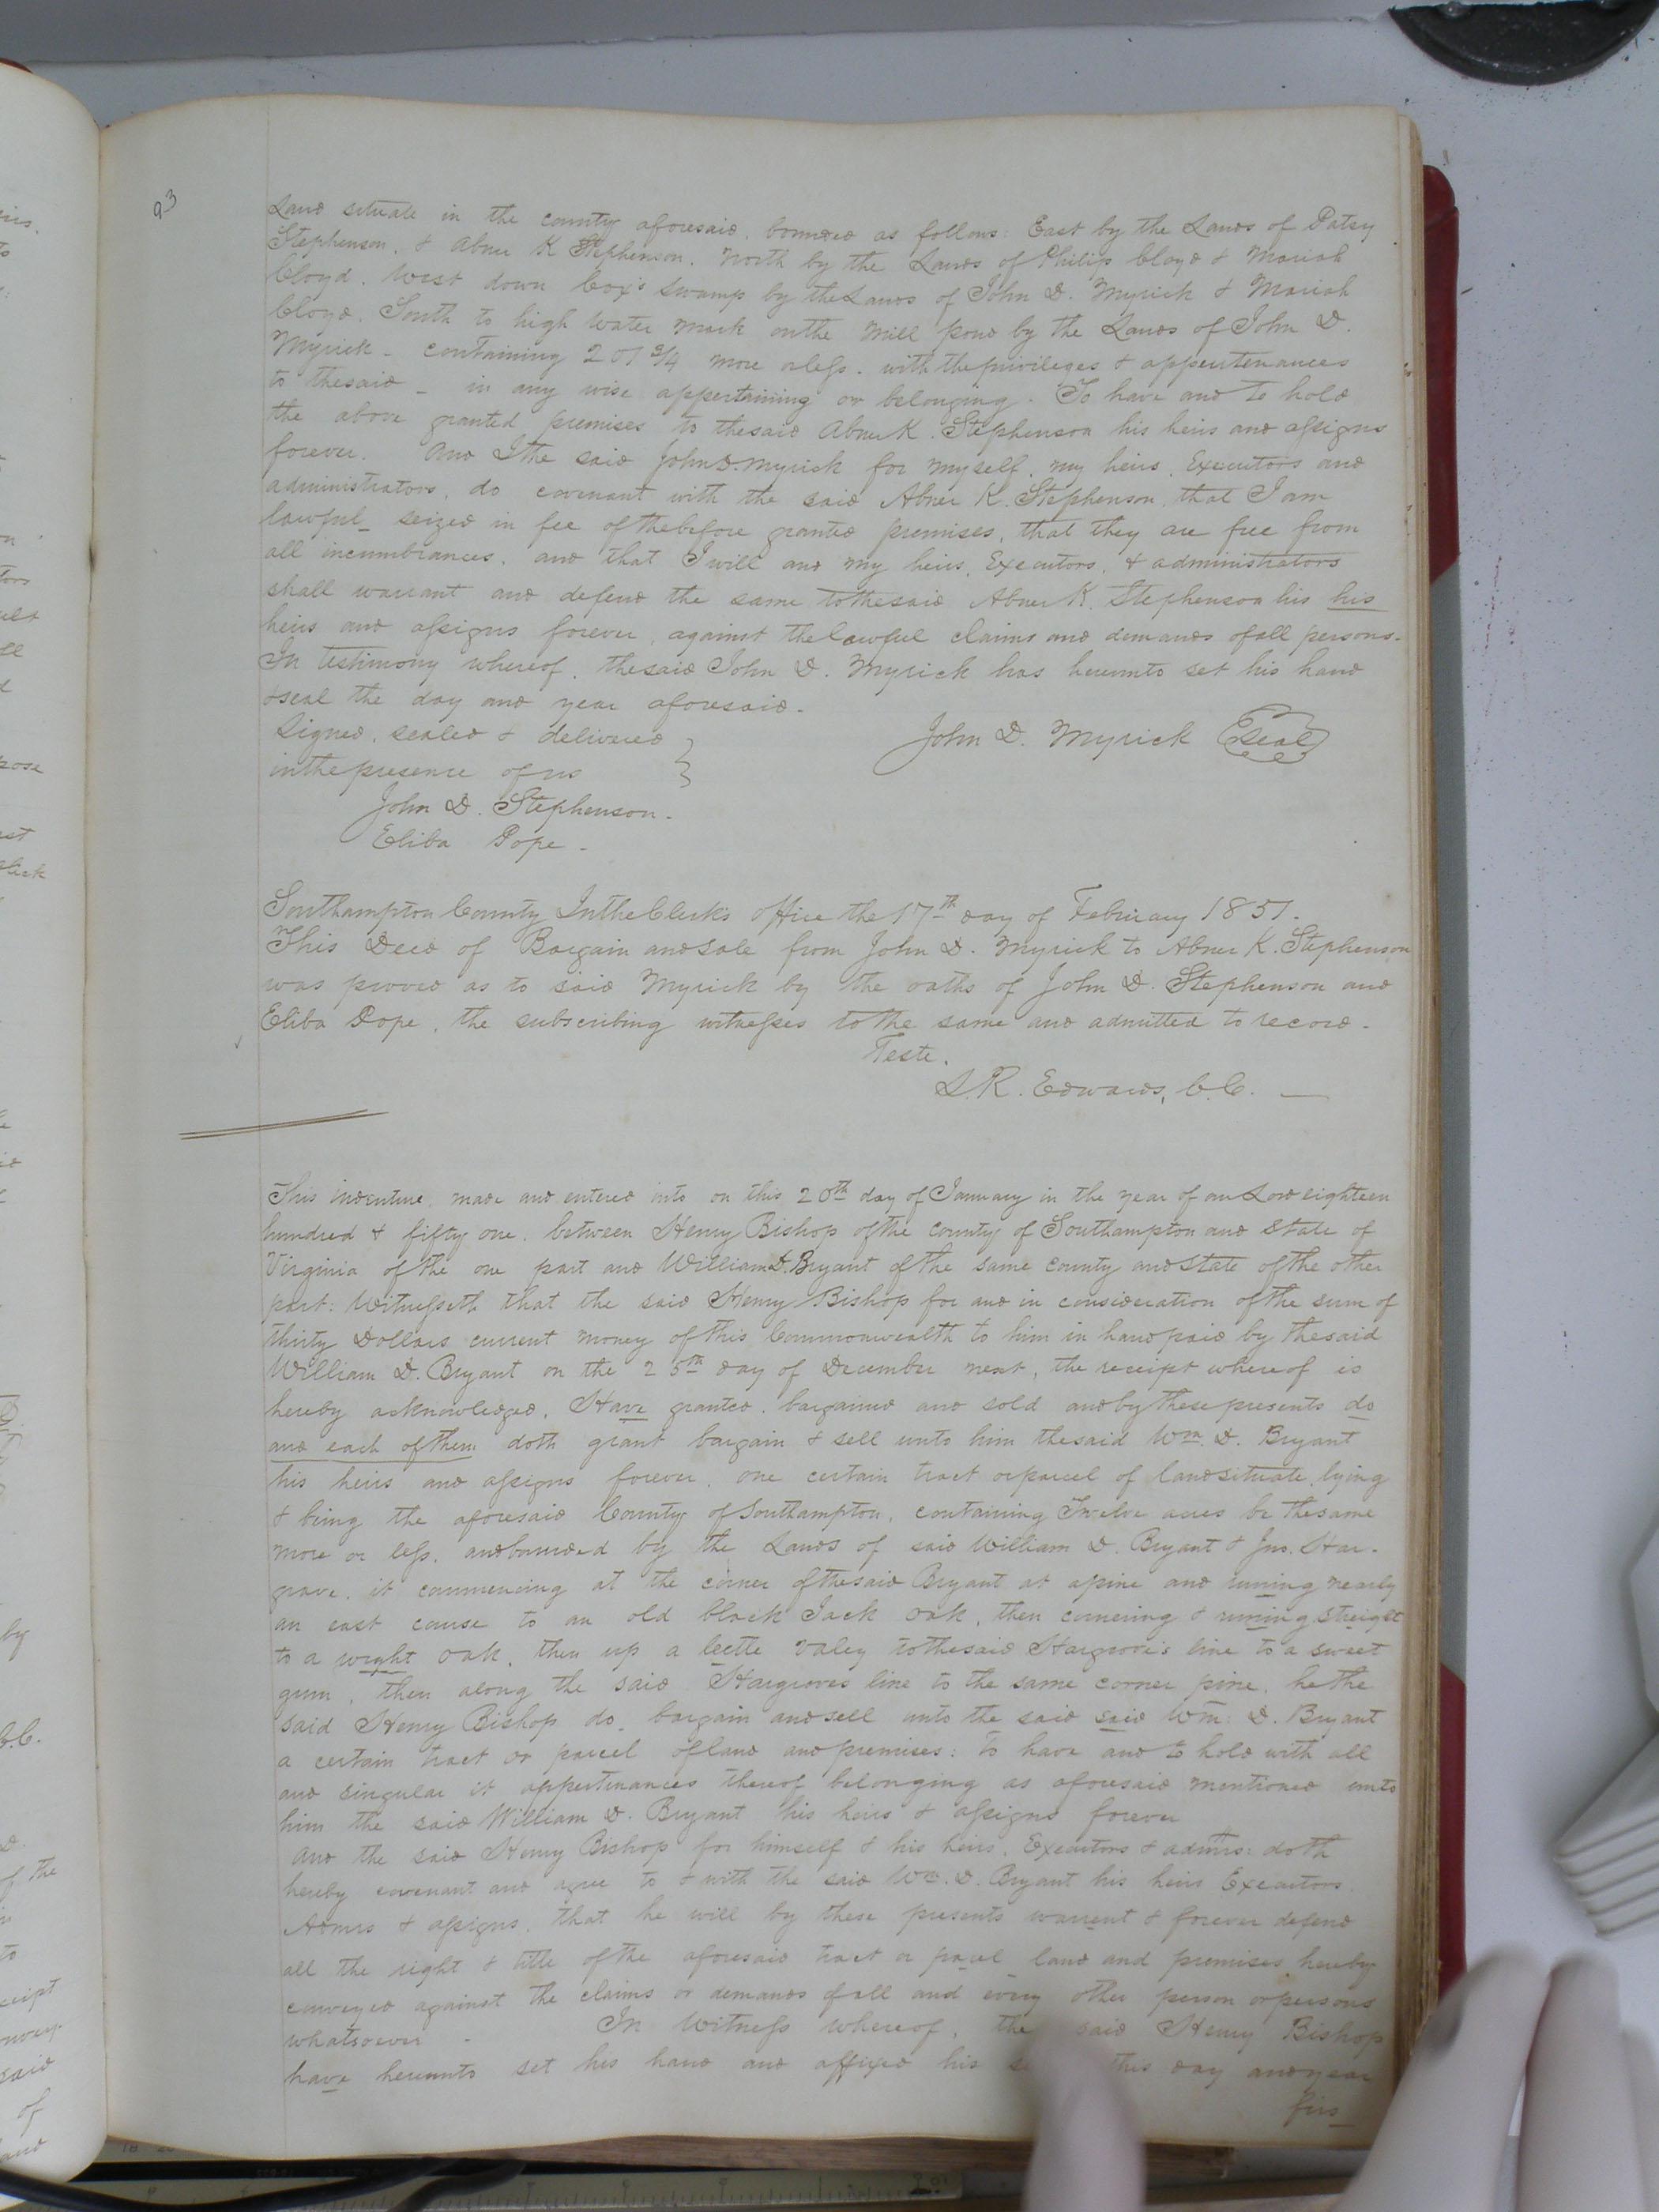 23
Land situate in the county aforesaid. bounded as follows: East by the Lands of Patsy
Stephenson. & Abner K Stephenson. North by the Lands of Philip Cloyd & Mariah
Cloyd. West down Cox's Swamp by the Lands of John D. Myrick & Mariah
Cloyd. South to high Water Mark on the Mill pond by the Lands of John D.
Myrick - containing 201 3/4 more or less. with the privileges & appertenances
to the said - in any wise appertaining or belonging. To have and to hold
the above granted premises to the said Abner K. Stephenson his heirs and assigns
forever. And I the said John D. Myrick for myself, my heirs, Executors and
administrators, do covenant with the said Abner K. Stephenson, that I am
lawful_ seized in fee of the before granted premises, that they are free from
all incumbrances. and that I will and my heirs, Executors, & administrators
shall warrant and defend the same to the said Abner K. Stephenson his his
heirs and assigns forever, against the lawful claims and demands of all persons.
In testimony whereof, the said John D. Myrick has hereunto set his hand
& seal the day and year aforesaid.
Signed, sealed & delivered } John D. Myrick Seal
in the presence of us }
John D. Stephenson.
Eliba Pope -
Southampton County In the Clerk's office the 17th day of February 1851.
This Deed of Bargain and sale from John D. Myrick to Abner K. Stephenson
was proved as to said Myrick by the oaths of John D. Stephenson and
Eliba Pope, the subscribing witnesses to the same and admitted to record.
Teste.
L.R. Edwards, C.C.
This indenture, made and entered into on this 20th day of January in the year of our Lord eighteen
hundred & fifty one, between Henry Bishop of the County of Southampton and State of
Virginia of the one part and William D. Bryant of the same County and State of the other
part: Witnesseth that the said Henry Bishop for and in consideration of the sum of
thirty Dollars current money of this Commonwealth to him in hand paid by the said
William D. Bryant on the 25th day of December next, the receipt whereof is
hereby acknowledged, Have granted, bargained and sold and by these presents do
and each of them doth grant bargain & sell unto him the said Wm. D. Bryant
his heirs and assigns forever, one certain tract or parcel of land situate, lying
& being the aforesaid County of Southampton, containing Twelve acres be the same
more or less, and bounded by the Lands of said William D. Bryant & Jno. Har-
grave. it commencing at the corner of the said Bryant at a pine and runing nearly
an east course to an old black Jack oak, then cornering & runing streight
to a wight oak, then up a leetle valey to the said Hargrove's line to a sweet
gum, then along the said Hargroves line to the same corner pine, he the
said Henry Bishop do_ bargain and sell unto the said said Wm: D. Bryant
a certain tract or parcel of land and premises: to have and to hold with all
and singular it appertinances thereof belonging as aforesaid mentioned unto
him the said William D. Bryant his heirs & assigns forever
And the said Henry Bishop for himself & his heirs, Executors & admrs: doth
hereby covenant and agree to & with the said Wm. D. Bryant his heirs Executors
Admrs & assigns, that he will by these presents warrent & forever defend
all the right & title of the aforesaid tract or pacel_ land and premises, hereby
conveyed against the claims or demands of all and every other person or persons
whatsoever - In Witness whereof, the said Henry Bishop
have hereunto set his hand and affixed his this day and year
firs